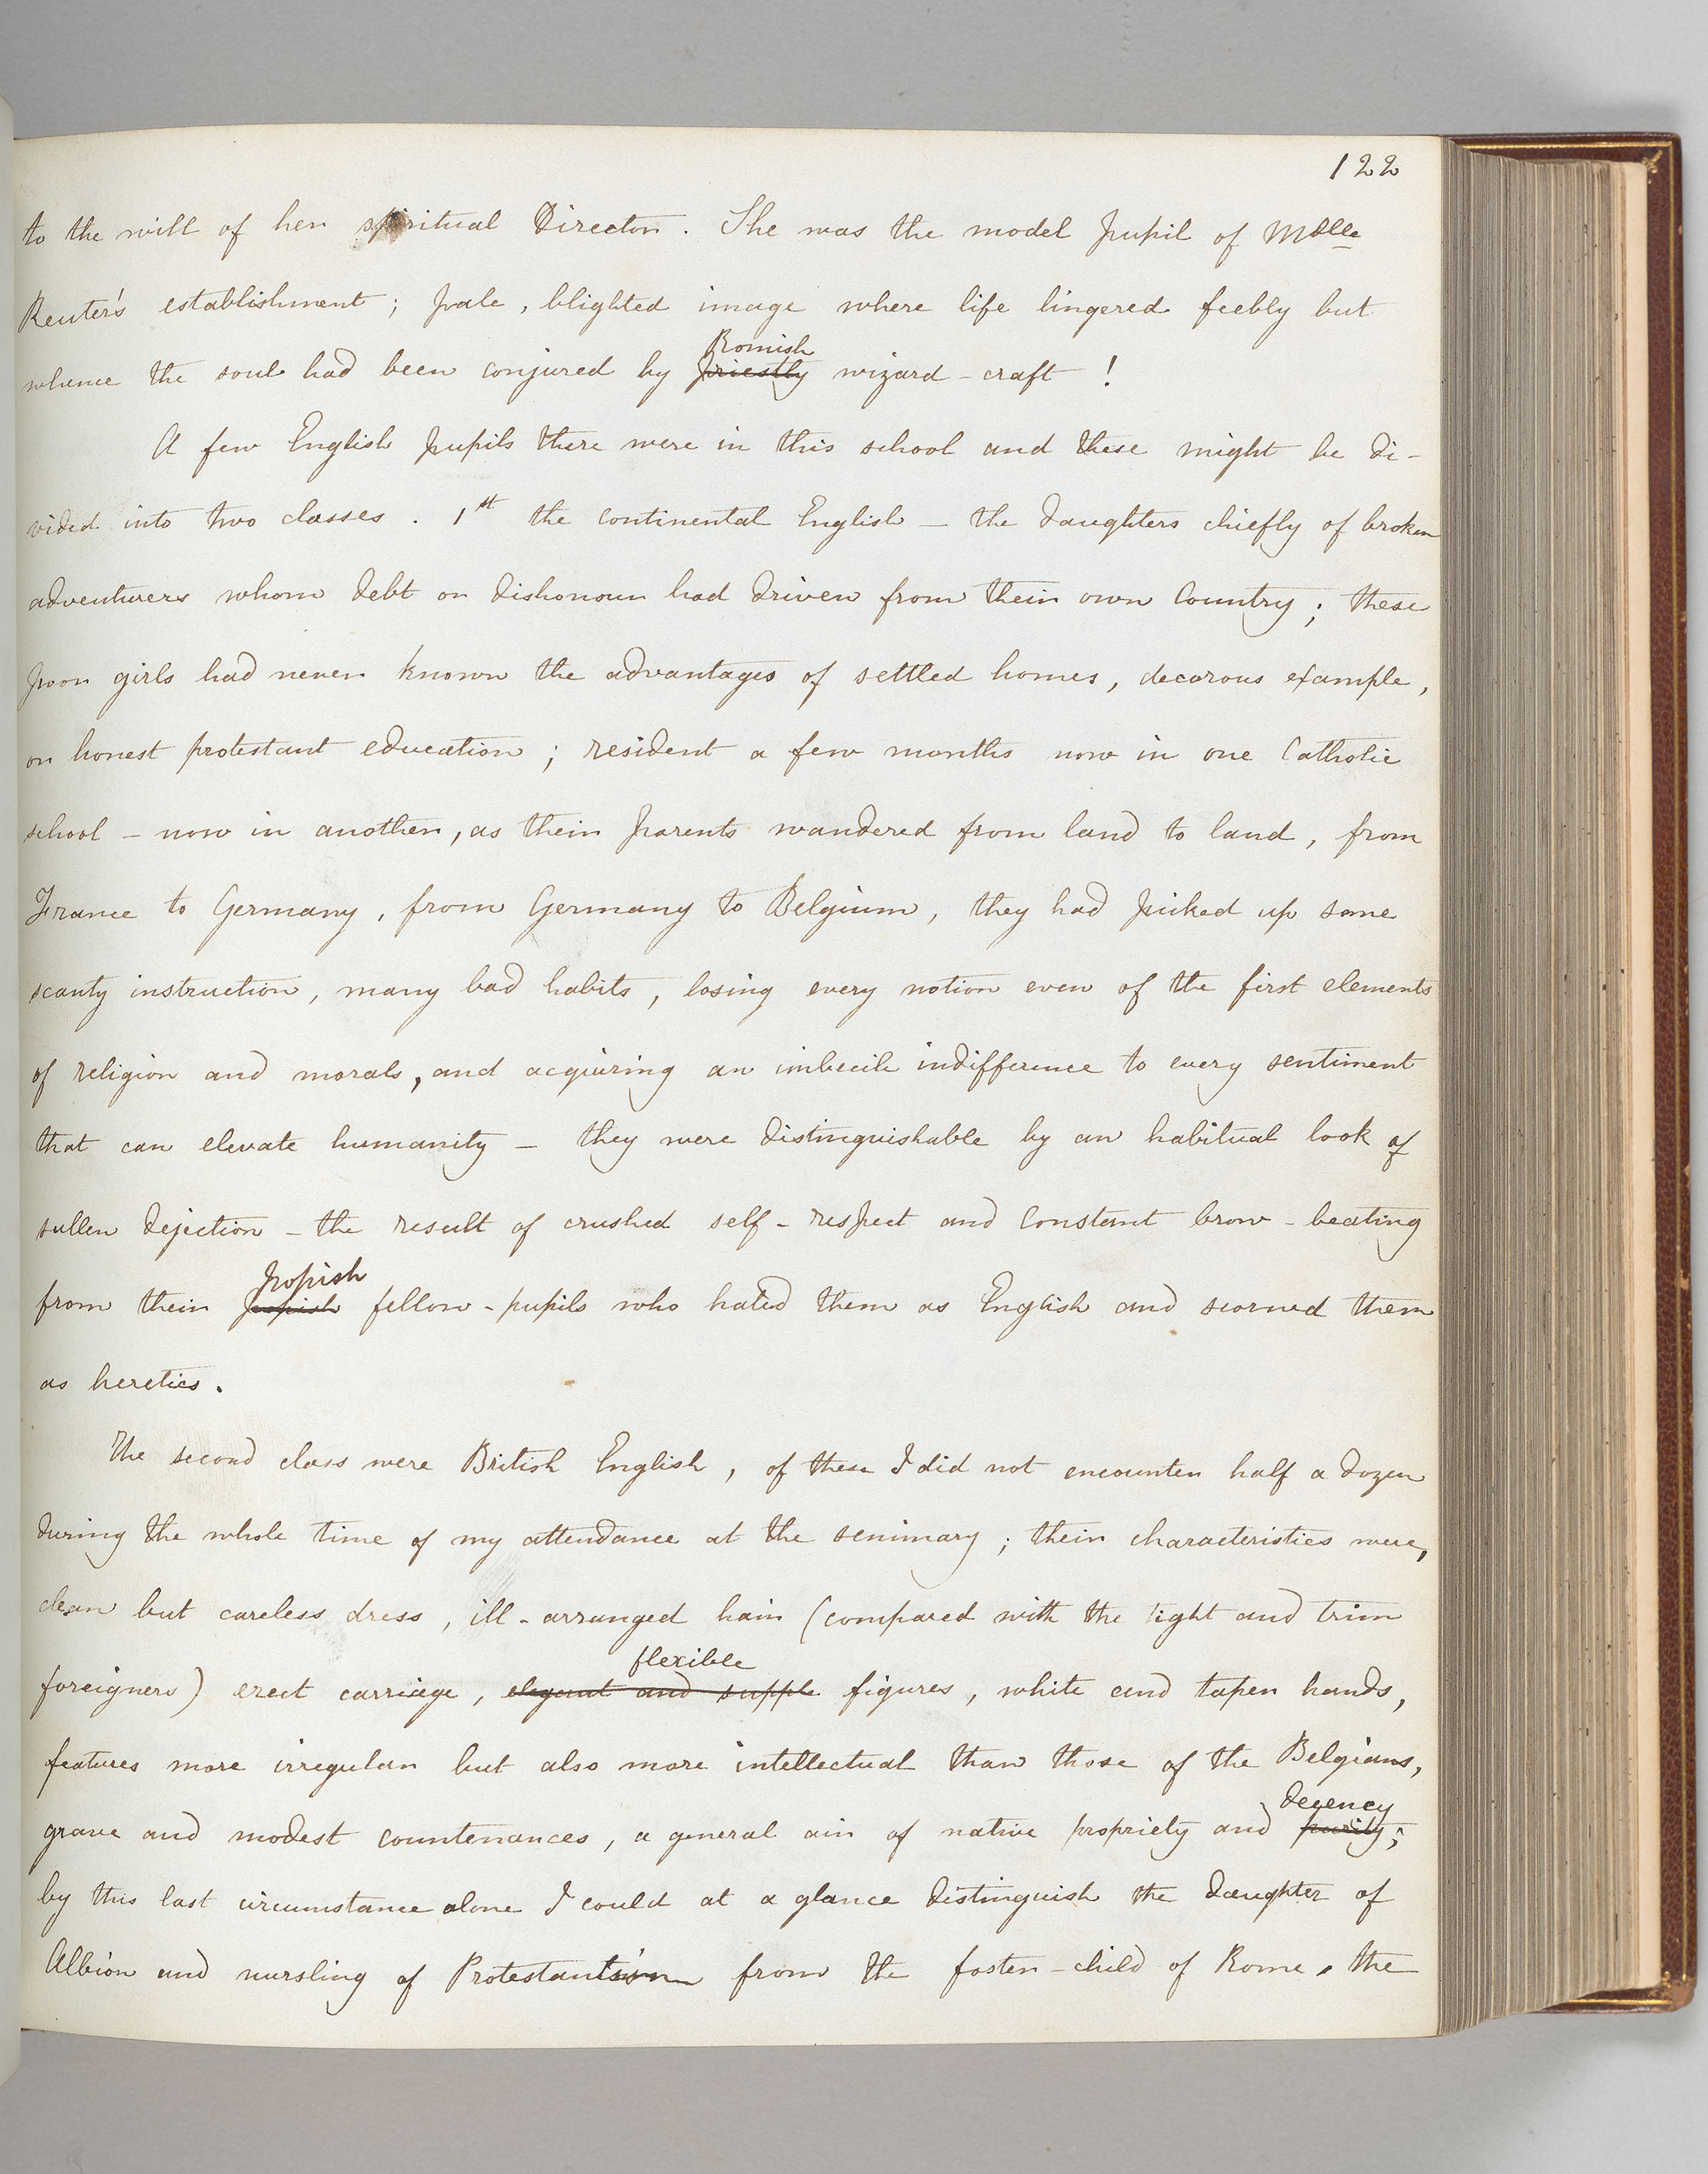 122
to the will of her spiritual Director. She was the model pupil of Mdlle
Reuter's establishment; pale, blighted image where life lingered feebly but
Romish
whence the soul had been conjured by priestly wizard-craft!
A few English pupils there were in this school and these might be di-
vided into two classes. 1st the continental English – the daughters chiefly of broken
adventurers whom debt or dishonour had driven from their own Country; these
poor girls had never known the advantages of settled homes, decorous example,
or honest protestant education; resident a few months now in one Catholic
school – now in another, as their parents wandered from land to land, from
France to Germany, from Germany to Belgium, they had picked up some
scanty instruction, many bad habits, losing every notion even of the first elements
of religion and morals, and acquiring an imbecile indifference to every sentiment
that can elevate humanity – they were distinguishable by an habitual look of
sullen dejection – the result of crushed self-respect and constant brow-beating
Popish
from their popish fellow-pupils who hated them as English and scorned them
as heretics.
The second class were British English, of these I did not encounter half a dozen
during the whole time of my attendance at the seminary; their characteristics were,
clean but careless dress, ill-arranged hair (compared with the tight and trim
flexible
foreigners) erect carriage, elegant and supple figures, white and taper hands,
features more irregular but also more intellectual than those of the Belgians,
decency
grave and modest countenances, a general air of native propriety and purity;
by this last circumstance alone I could at a glance distinguish the daughter of
Albion and nursling of Protestantism from the foster-child of Rome, the